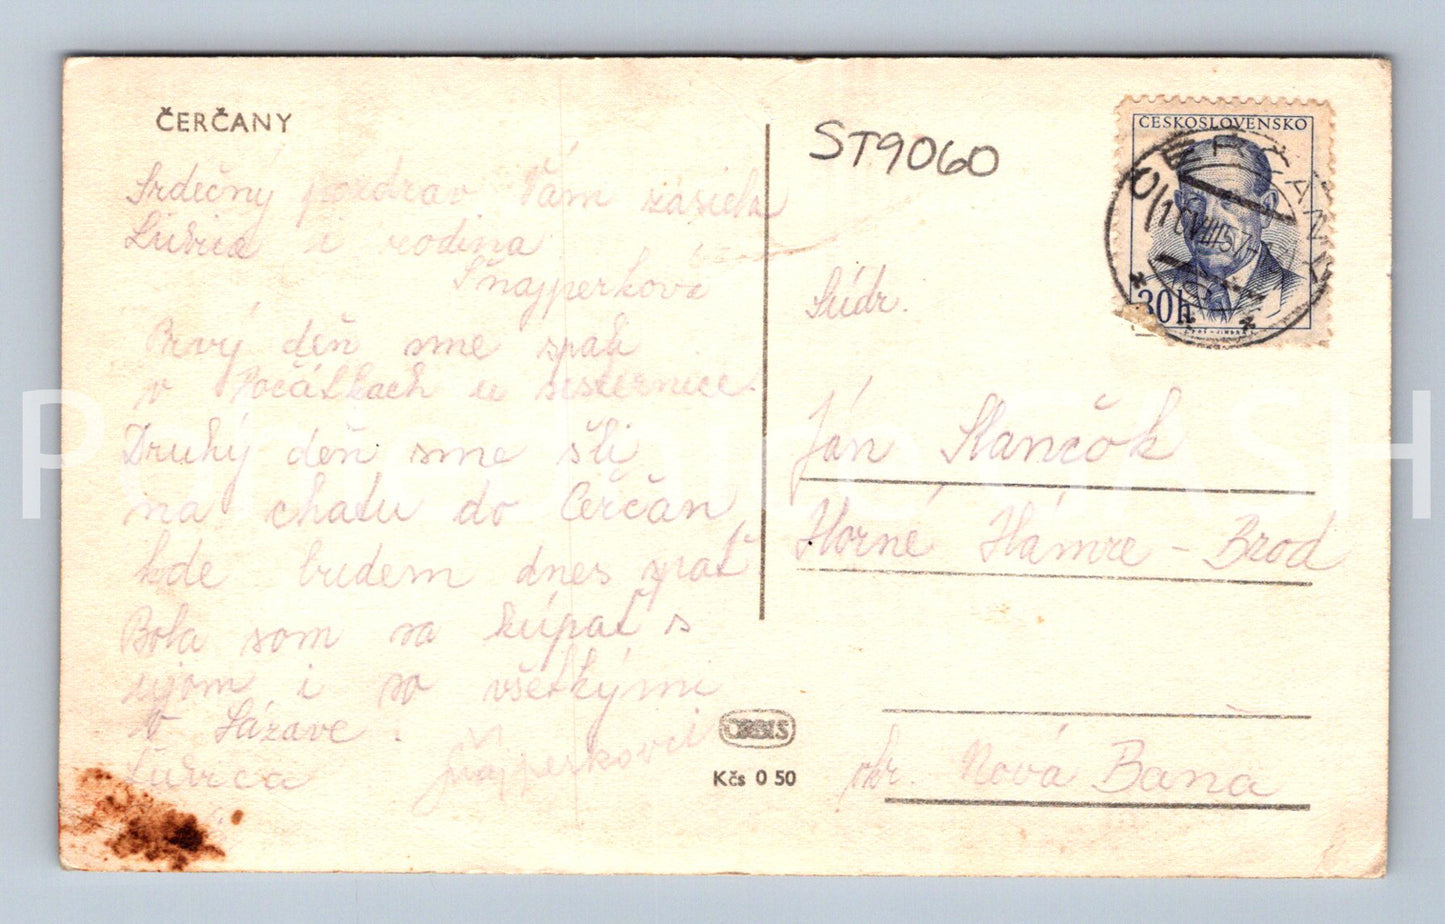 ČERČANY
Srdečný pozdrav Vám zasiela
Ľubica i rodina
Šnajperkova
Prvý deň sme spali
v Počátkach u sesternice.
Druhý deň sme šli
na chatu do Čerčan
kde budem dnes spať
Bola som sa kúpať s
ujom i so všetkými
v Sázave.
Ľubica Šnajperkovci
ORBIS
Kčs 0 50
ST9060
ČESKOSLOVENSKO
30h
ČERČANY
Súdr.
Ján Slančok
Horné Hámre - Brod
okr. Nová Baňa